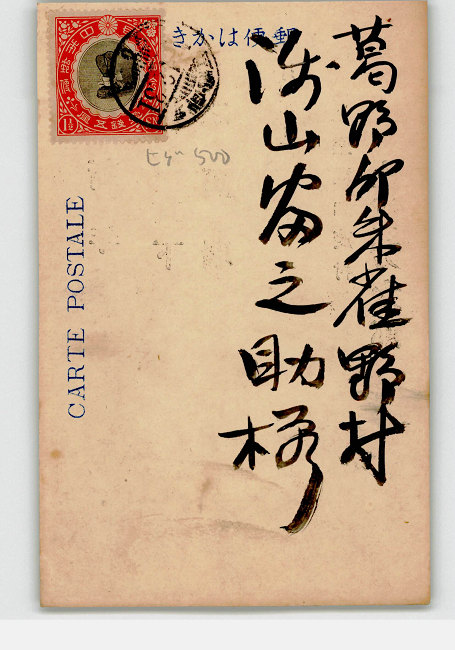 郵便はかき
葛野郡朱雀野村
山富之助様
CARTE POSTALE
500
1½